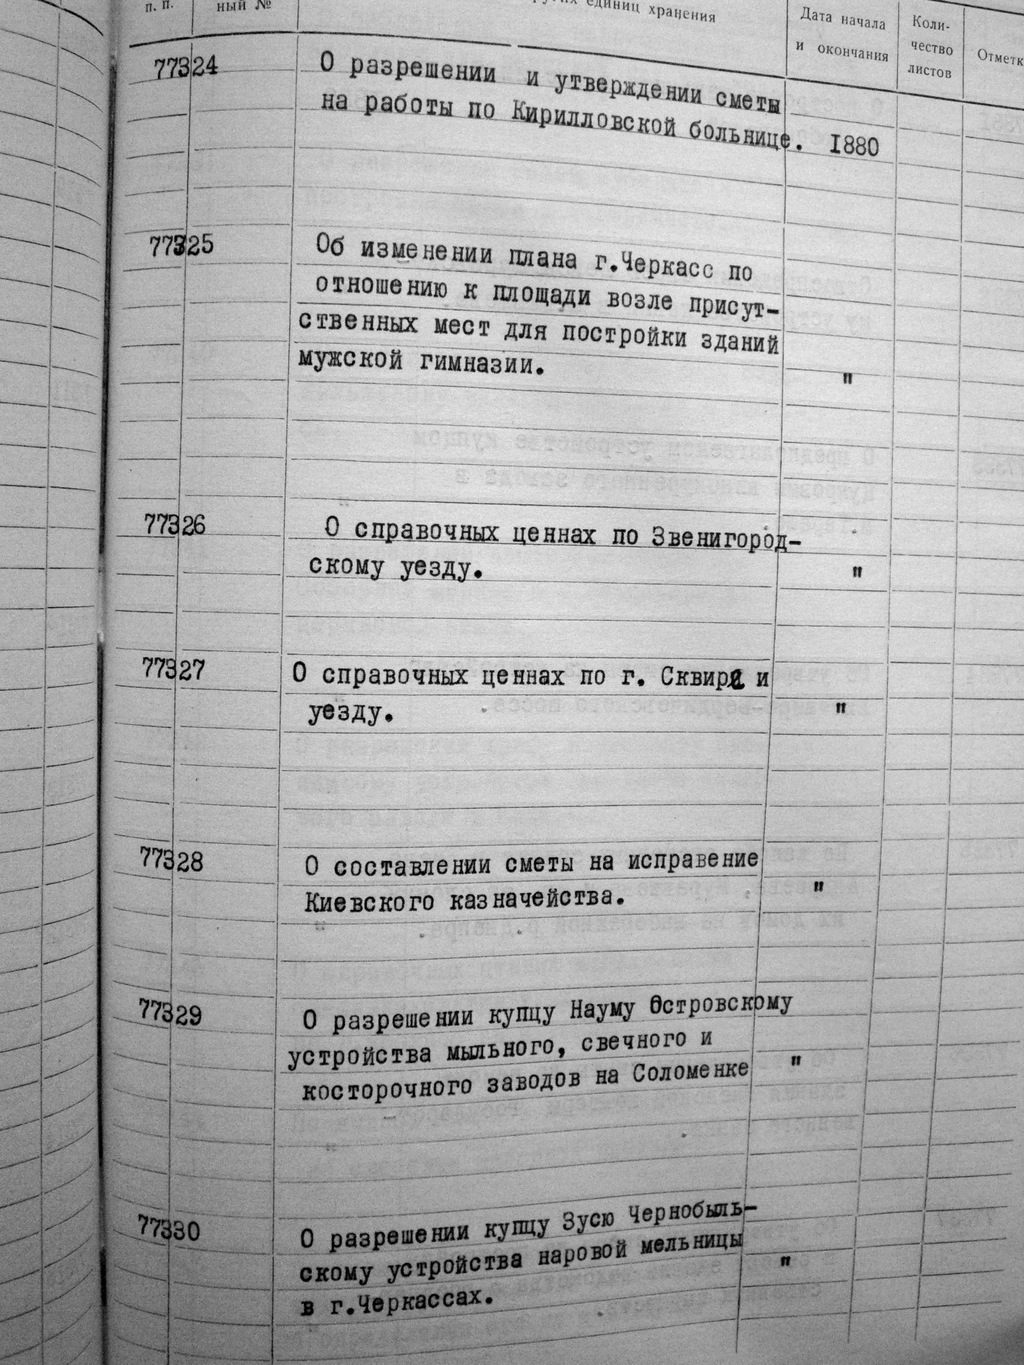 п. п.
ный №
единиц хранения
Дата начала
и окончания
Коли-
чество
листов
Отметк
77324
О разрешении и утверждении сметы
на работы по Кирилловской больнице. 1880
77325
Об изменении плана г.Черкасс по
отношению к площади возле присут-
ственных мест для постройки зданий
мужской гимназии. "
77326
О справочных ценнах по Звенигород-
скому уезду. "
77327
О справочных ценнах по г. Сквире и
уезду. "
77328
О составлении сметы на исправение
Киевского казначейства. "
77329
О разрешении купцу Науму Островскому
устройства мыльного, свечного и
косторочного заводов на Соломенке "
77330
О разрешении купцу Зусю Чернобыль-
скому устройства наровой мельницы
в г.Черкассах. "